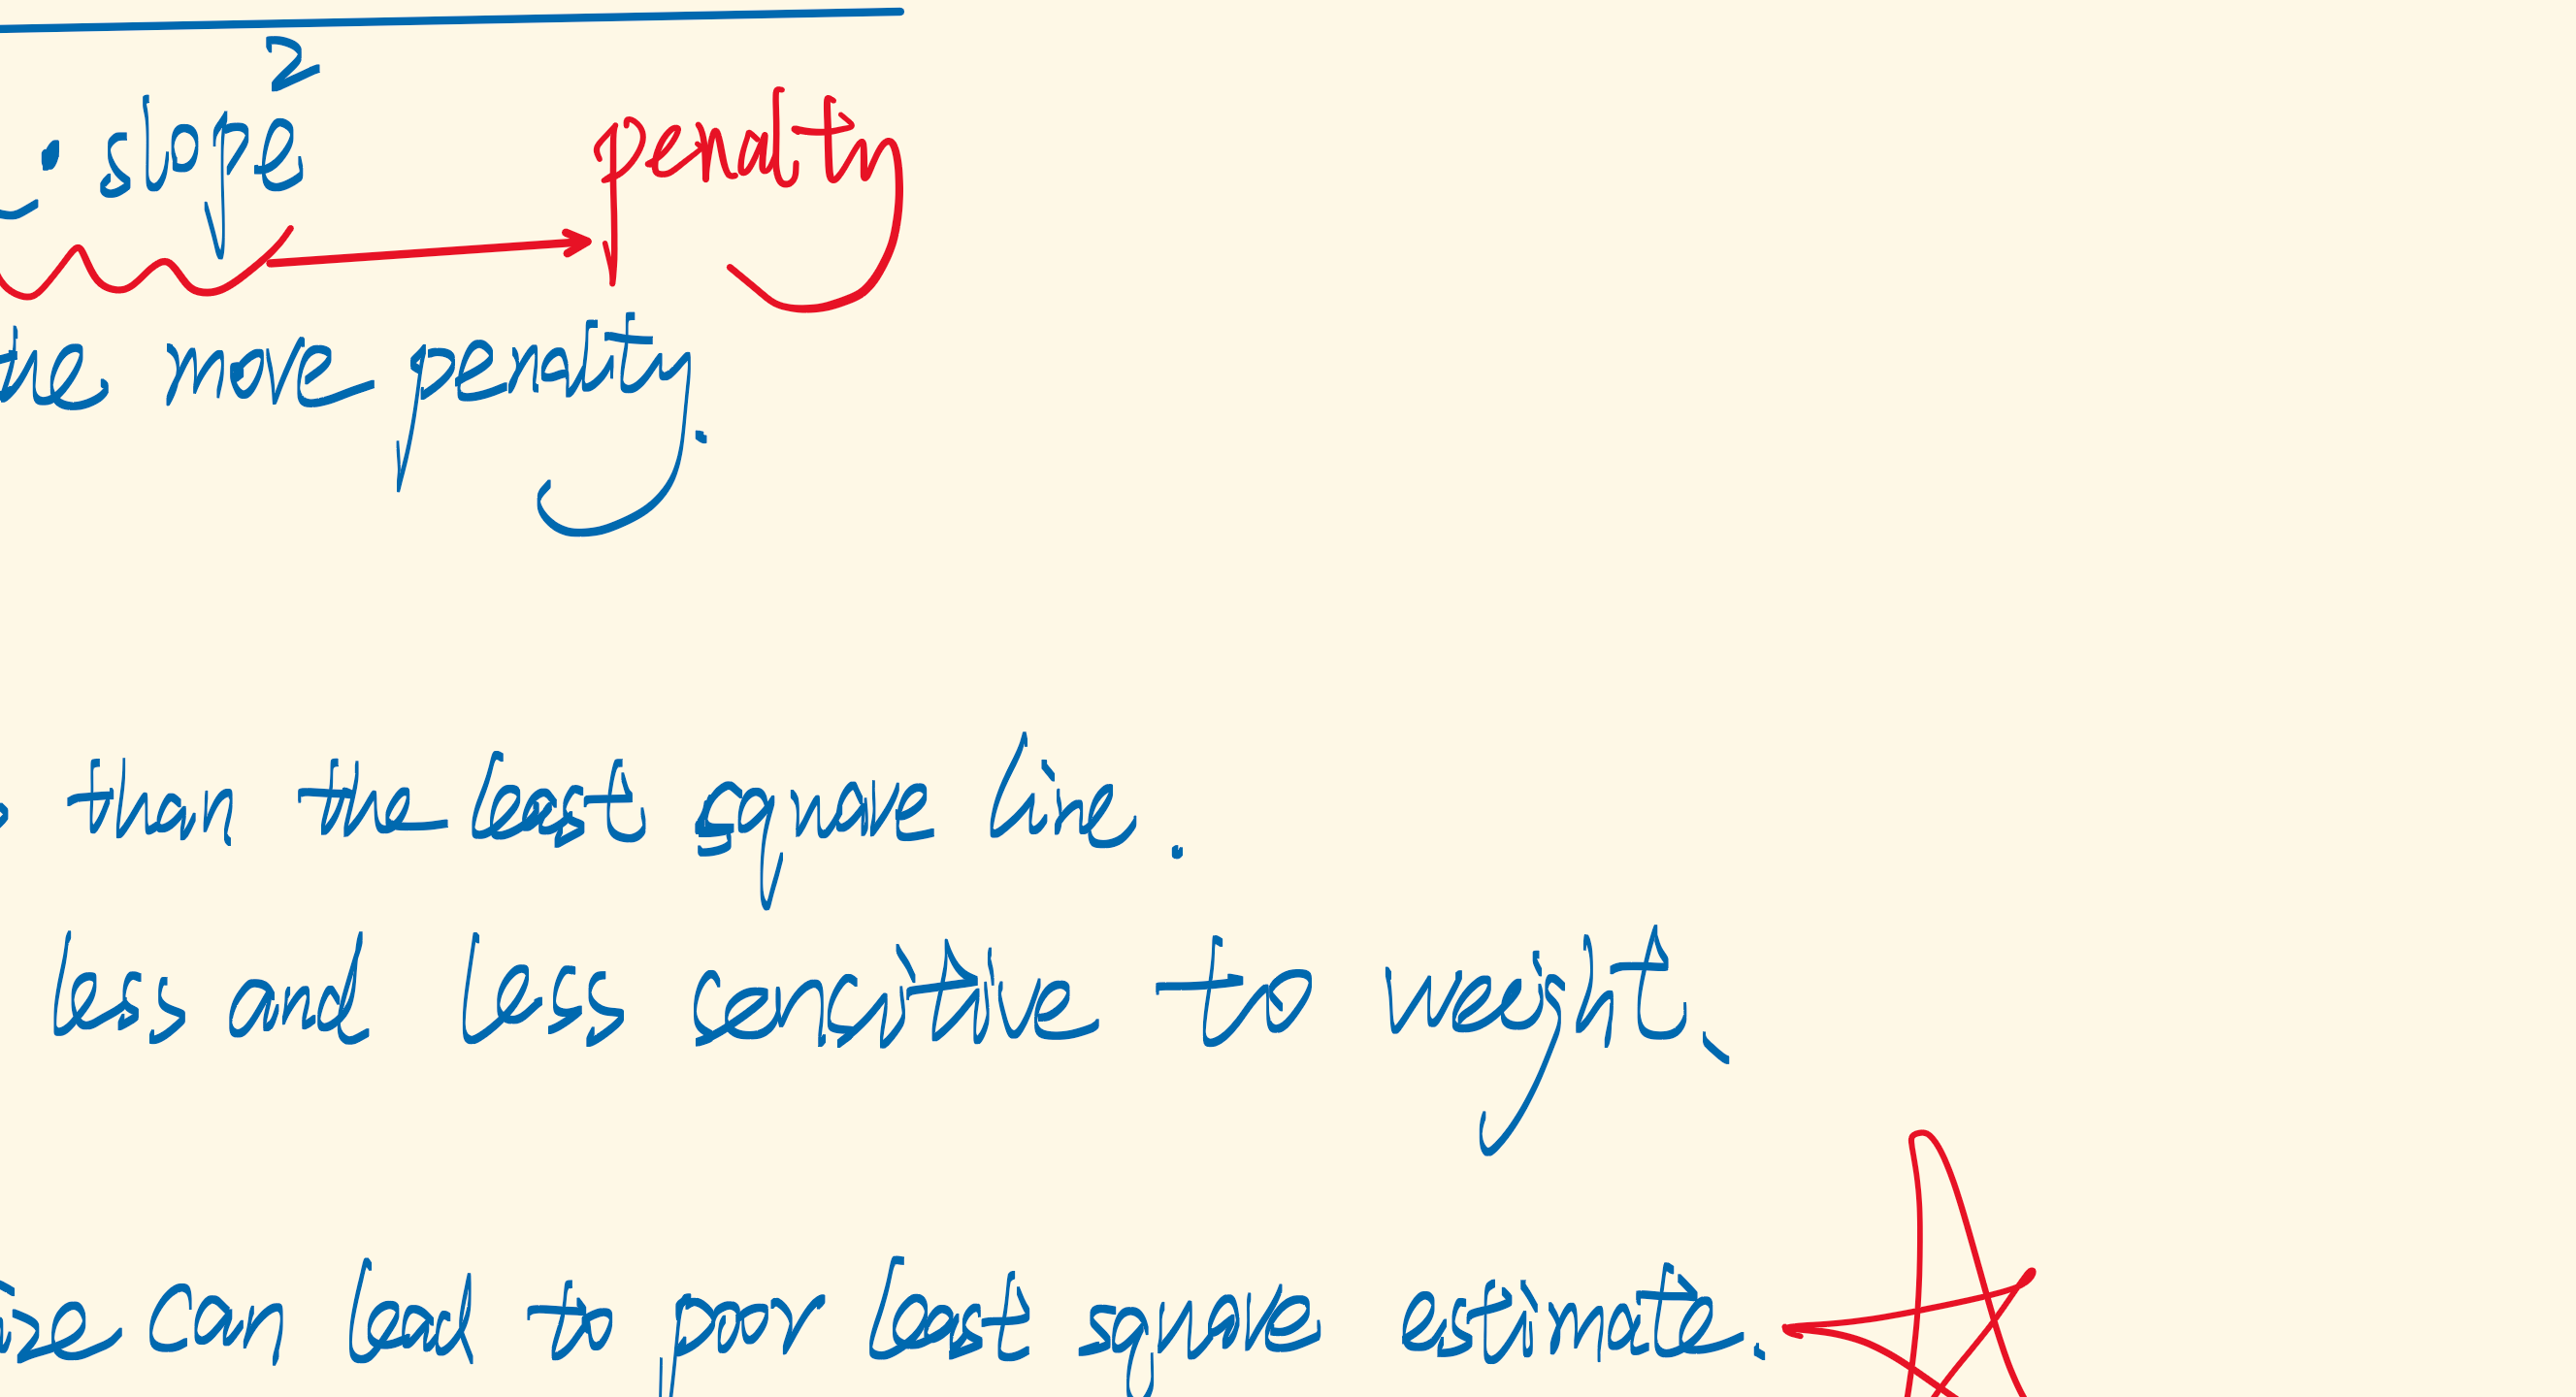 · slope² penalty
the more penality.
than the least square line.
less and less sensitive to weight.
can lead to poor least square estimate.